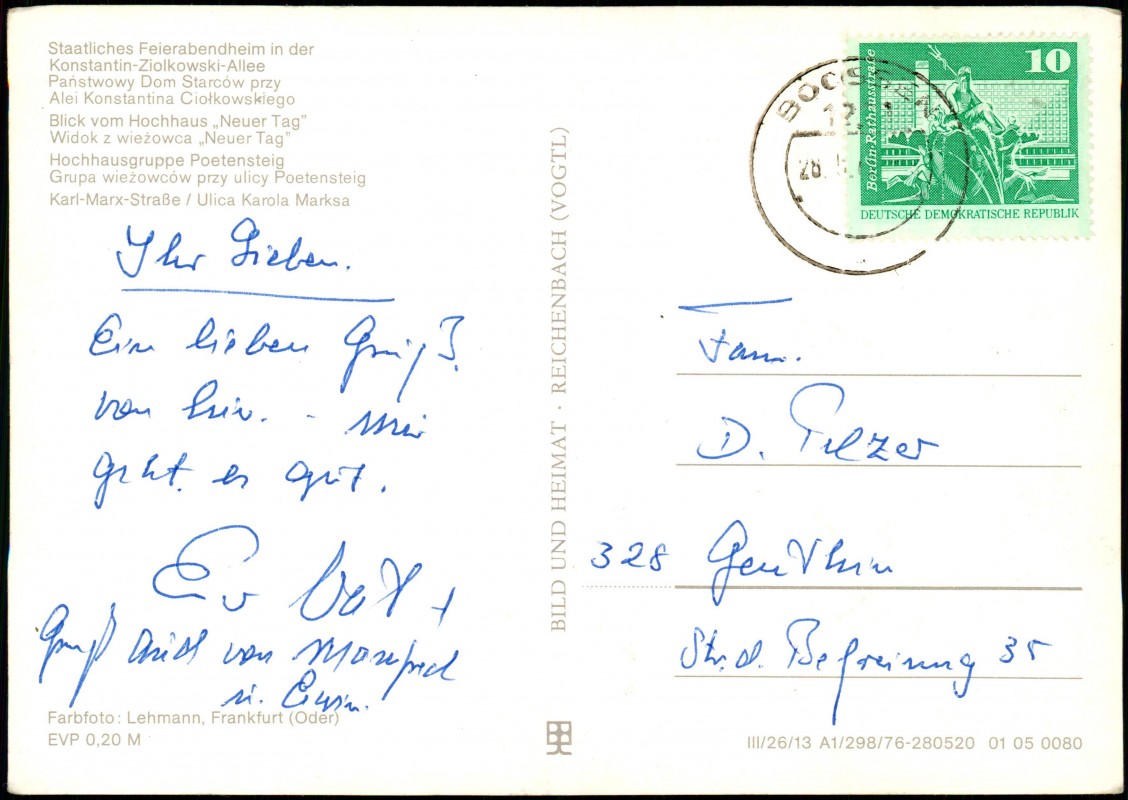 Staatliches Feierabendheim in der
Konstantin-Ziolkowski-Allee
Państwowy Dom Starców przy
Alei Konstantina Ciołkowskiego
Blick vom Hochhaus „Neuer Tag"
Widok z wieżowca „Neuer Tag"
Hochhausgruppe Poetensteig
Grupa wieżowców przy ulicy Poetensteig
Karl-Marx-Straße / Ulica Karola Marksa
Ihr Lieben.
Ein lieben Gruß
von hier. - Mir
geht es gut.
Gruß auch von Manfred
u. Erwin.
Farbfoto: Lehmann, Frankfurt (Oder)
EVP 0,20 M
BILD UND HEIMAT · REICHENBACH (VOGTL)
BOOSSEN
12
28.
10
Berlin-Rathausstraße
DEUTSCHE DEMOKRATISCHE REPUBLIK
Fam.
D. Pelzer
328 Genthin
Str. d. Befreiung 35
III/26/13 A1/298/76-280520 01 05 0080